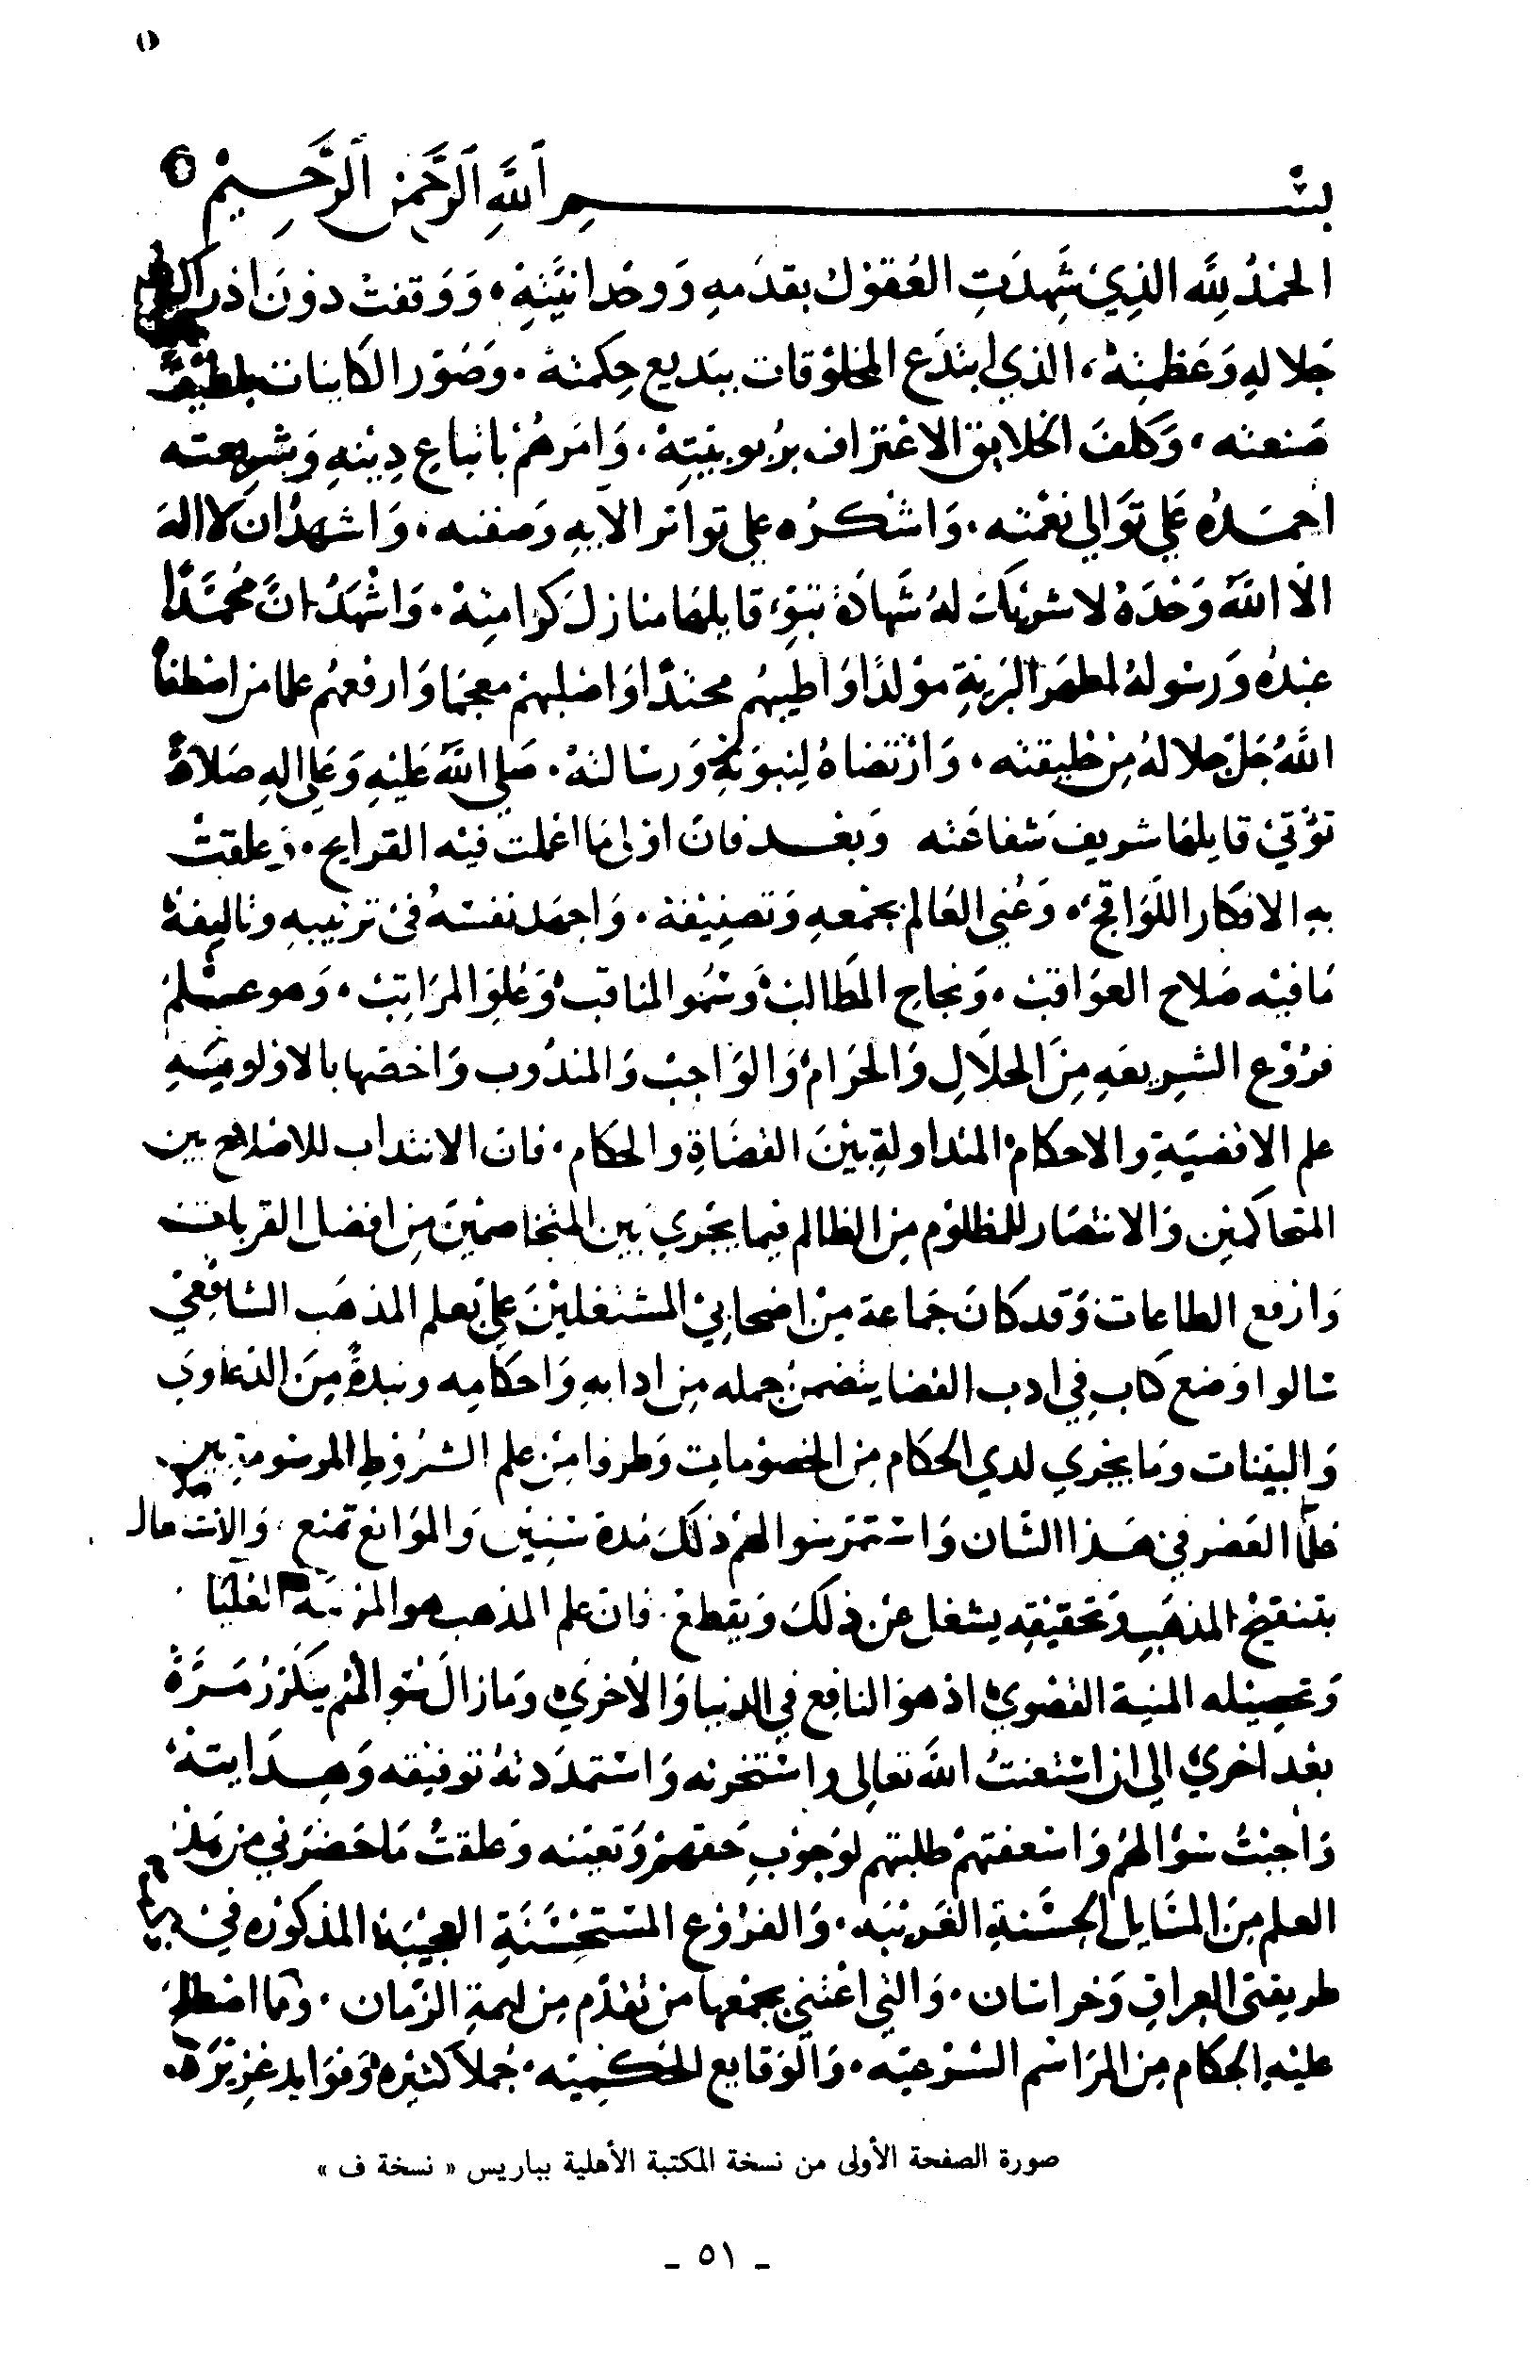 بسم الله الرحمن الرحيم
الحمد لله الذي شهدت العقول بقدمه ووحدانيته، ووقفت دون ادراك
جلاله وعظمته، الذي ابتدع المخلوقات ببديع حكمته، وصور الكاينات بلطيف
صنعته، وكلف الخلايق الاعتراف بربوبيته، وامرهم باتباع دينه وشريعته
احمده على توالي نعمته، واشكره على تواتر الايه، واشهد ان لا اله
الا الله وحده لا شريك له شهادة تبوئ قايلها منازل كرامته، واشهد ان محمدا
عبده ورسوله اطهر البرية مولدا واطيبهم محتدا واصلبهم معجما وارفعهم علما من اصطفاه
الله جل جلاله من خليقته، وارتضاه لنبوته ورسالته، صلى الله عليه وعلى اله صلاة
تؤتي قايلها شريف شفاعته وبعد فان اولى ما اعملت فيه القرايح، وعلقت
به الافكار اللواقح، وعني العالم بجمعه وتصنيفه، واجهد نفسه في ترتيبه وتاليفه
ما فيه صلاح العواقب، ونجاح المطالب، وسمو المناقب وعلو المراتب، وهو علم
فروع الشريعه من الحلال والحرام والواجب والمندوب واخصها بالاولوية
علم الاقضية والاحكام المتداولة بين القضاة والحكام، فان الانتداب للاصلاح بين
المتحاكمين والانتصار للمظلوم من الظالم فيما يجري بين المتخاصمين من افضل القربات
وارفع الطاعات وقد كان جماعة من اصحابي المشتغلين علي بعلم المذهب الشافعي
سالوا وضع كتاب في ادب القضا يتضمن جمله من ادابه واحكامه ونبذة من الدعاوي
والبينات وما يجري لدي الحكام من الخصومات وطرفا من علم الشروط المرسومة بين
علما العصر في هذا الشان واستمر سوالهم ذلك مدة سنين والموانع تمنع، والاشتغال
بتنقيح المذهب وتحقيقه يشغل عن ذلك ويقطع، فان علم المذهب هو المزية العليا
وتحصيله المنية القصوى اذ هو النافع في الدنيا والاخرى وما زال سؤالهم يتكرر مرة
بعد اخرى الى ان استعنت الله تعالى واستخرته واستمددته توفيقه وهدايته
واجبت سؤالهم واسعفتهم طلبتهم لوجوب حقهم وتعينه وعلقت ما حضرني من هذا
العلم من المسايل الحسنة الغريبه، والفروع المستحسنة العجيبة المذكوره في
طريقتي العراق وخراسان، والتي اعتنى بجمعها من تقدم من ايمة الزمان، وما اصطلح
عليه الحكام من المراسم الشرعيه، والوقايع الحكميه، جملا كثيره وفوايد غزيرة،
صورة الصفحة الأولى من نسخة المكتبة الأهلية بباريس « نسخة ف »
ـ ٥١ ـ